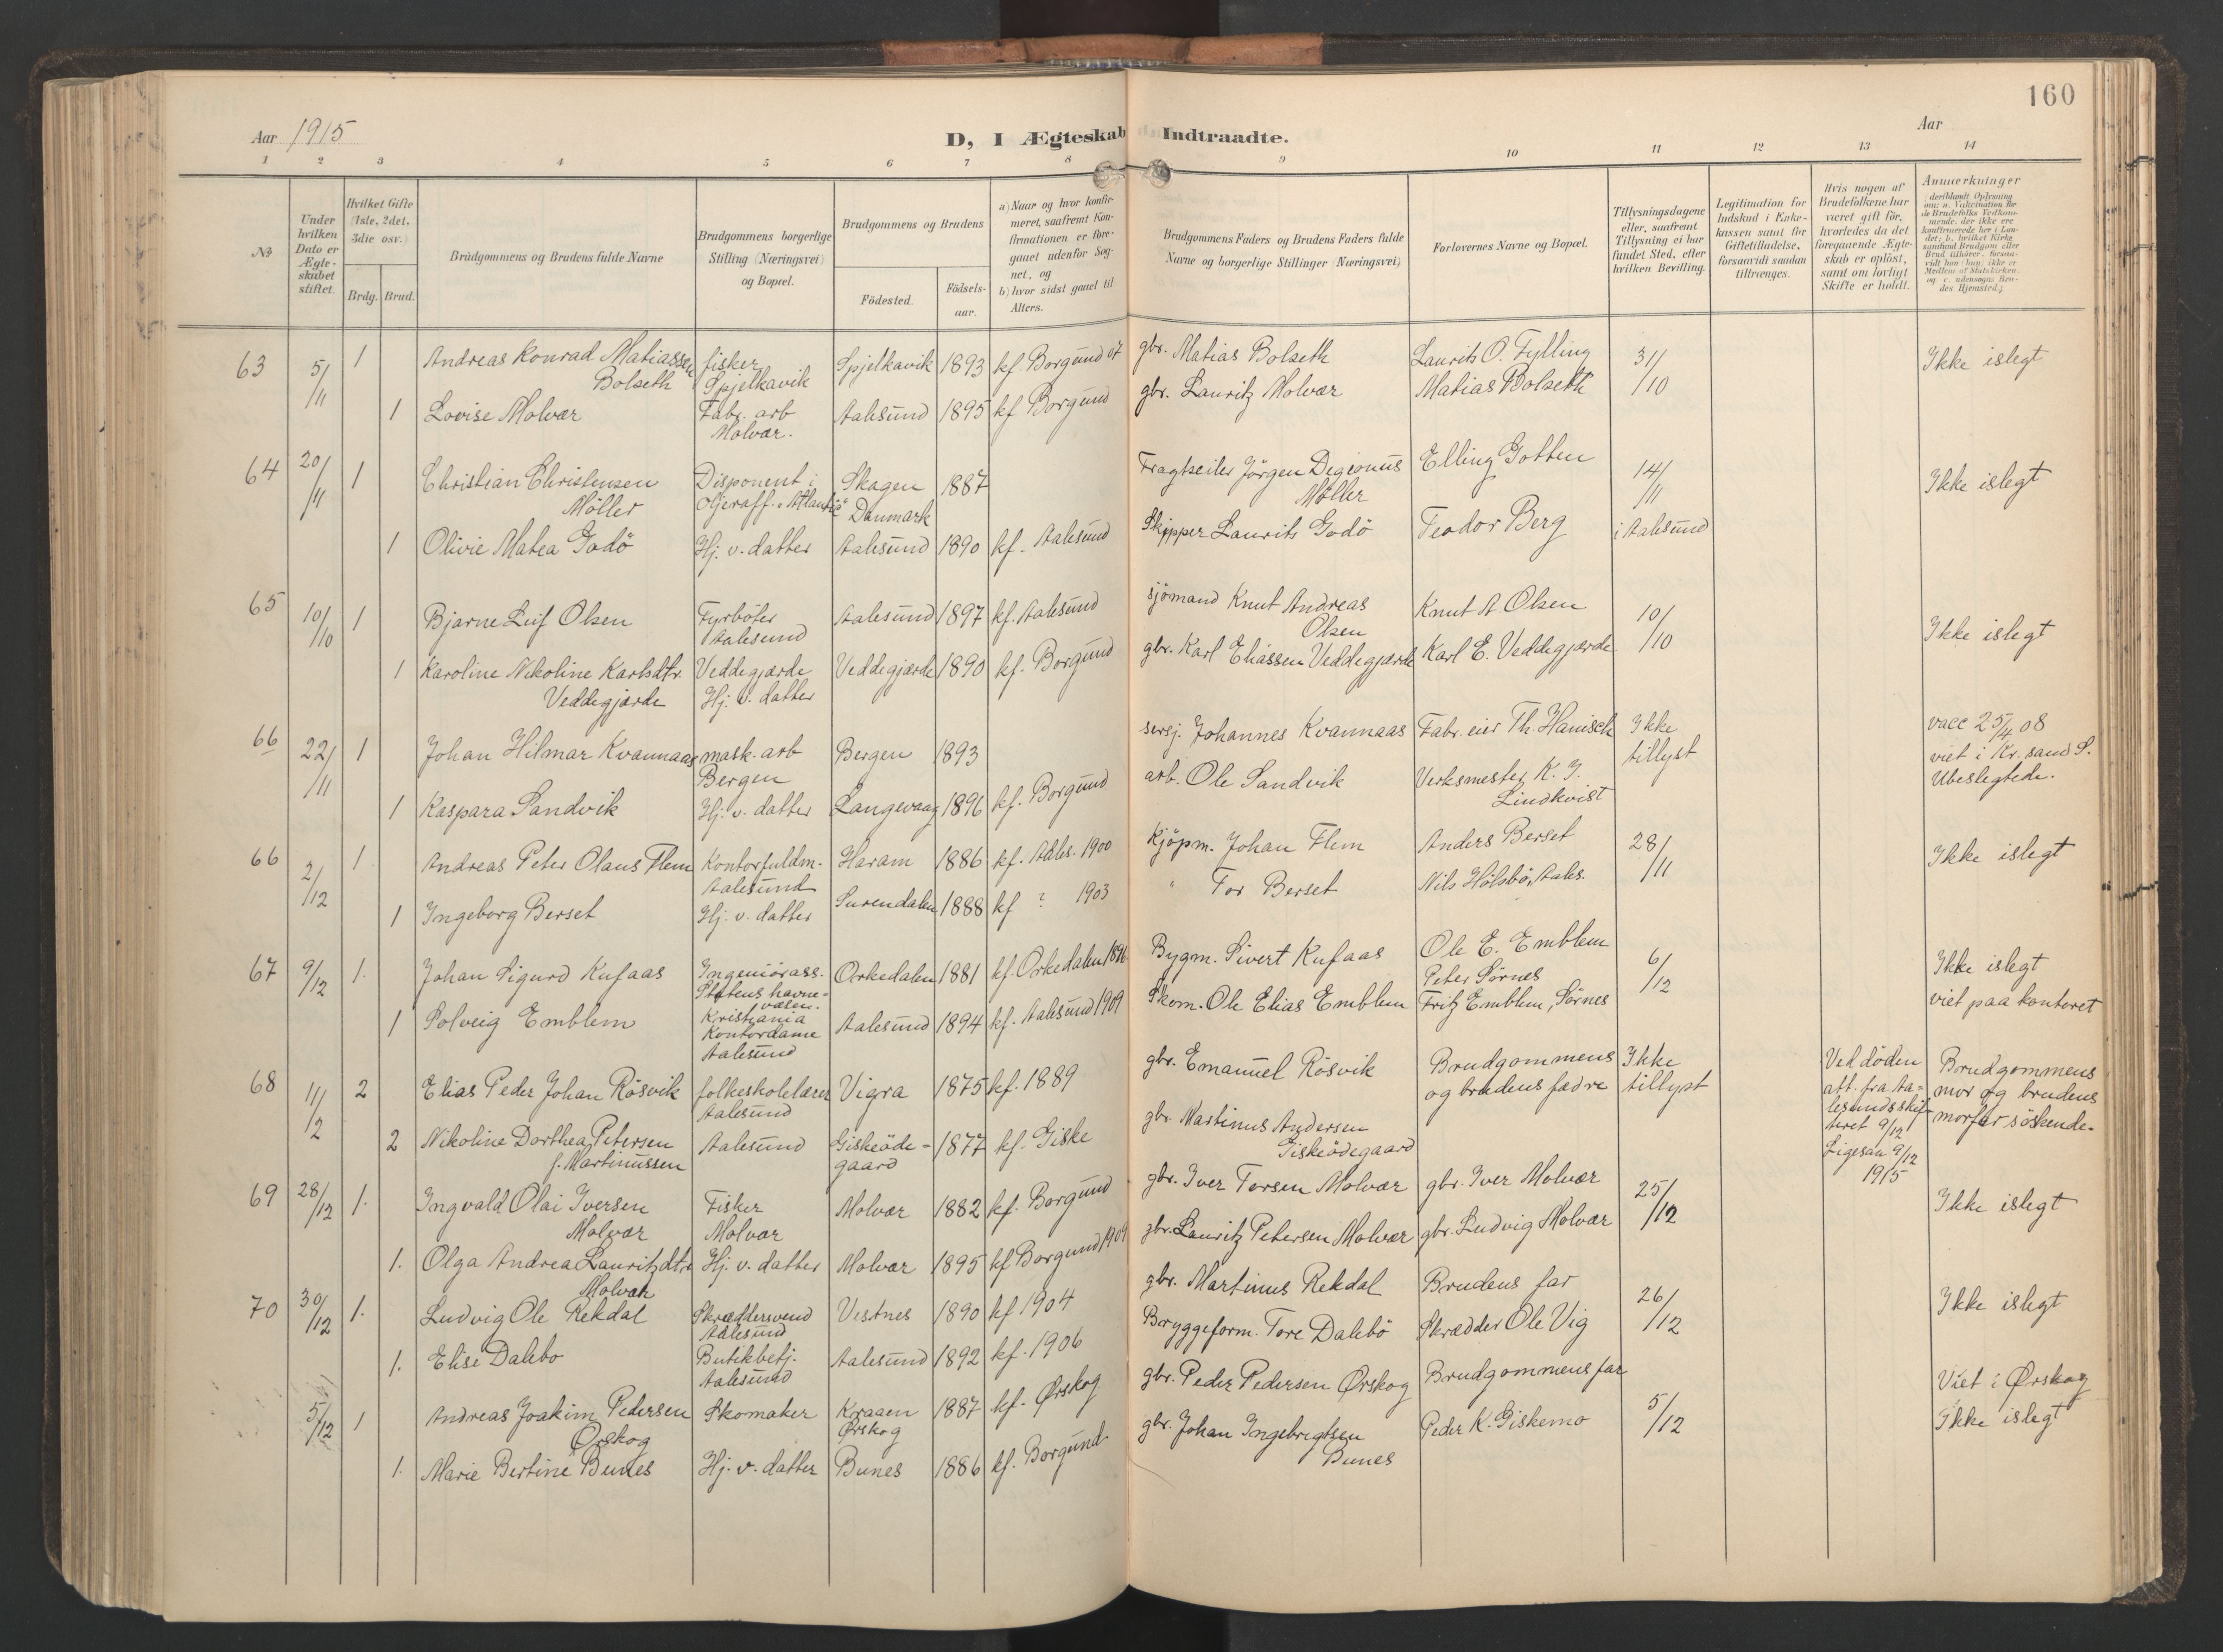 160
Aar 1915
D, I Ægteskab Indtraadte.
Aar
1 2 3 4 5 6 7 8 9 10 11 12 13 14
No
Under hvilken Dato er Ægteskabet stiftet.
Hvilket Gifte (1ste, 2det, 3die osv.)
Brdg. Brud.
Brudgommens og Brudens fulde Navne
Brudgommens borgerlige Stilling (Næringsvei) og Bopæl.
Brudgommens og Brudens
Födested. Födselsaar.
a) Naar og hvor konfirmeret, saafremt Konfirmationen er foregaaet udenfor Sognet, og
b) hvor sidst gaaet til Alters.
Brudgommens Faders og Brudens Faders fulde Navne og borgerlige Stillinger (Næringsvei)
Forlovernes Navne og Bopæl.
Tillysningsdagene eller, saafremt Tillysning ei har fundet Sted, efter hvilken Bevilling.
Legitimation for Indskud i Enkekassen samt for Giftetilladelse, forsaavidt saadan tiltrænges.
Hvis nogen af Brudefolkene har været gift før, hvorledes da det foregaaende Ægteskab er opløst, samt om lovligt Skifte er holdt.
Anmerkninger (deriblandt Oplysning om: a. Vakcination for de Brudefolks Vedkommende, der ikke ere konfirmerede her i Landet; b. hvilket Kirkesamfund Brudgom eller Brud tilhører, forsaavidt han (hun) ikke er Medlem af Statskirken og c. udensogns Brudes Hjemsted.)
63 5/11 1 Andreas Konrad Matiassen Bolseth fisker Spjelkavik Spjelkavik 1893 kf. Borgund 07 gbr. Matias Bolseth Laurits O. Fylling 31/10 Ikke islegt
1 Lovise Molvær Fabr. arb Molvær. Aalesund 1895 kf Borgund gbr. Lauritz Molvær Matias Bolseth
64 20/11 1 Christian Christensen Möller Disponent i Oljeraff. "Atlantic" Skagen Danmark 1887 Fragtseiler Jörgen Möller Elling Gotten 14/11 i Aalesund Ikke islegt
1 Olivie Matea Godö Hj. v. datter Aalesund 1890 kf. Aalesund Skipper Laurits Godö Teodor Berg
65 10/10 1 Bjarne Leif Olsen Fyrböter Aalesund Aalesund 1897 kf. Aalesund sjömand Knut Andreas Olsen Knut A Olsen 10/10 Ikke islegt
1 Karoline Nikoline Karlsdtr. Veddegjærde Veddegjærde Hj. v. datter Veddegjærde 1890 kf. Borgund gbr. Karl Eliassen Veddegjærde Karl E. Veddegjærde
66 22/11 1 Johan Hilmar Kvannaas mask. arb Bergen Bergen 1893 sersj. Johannes Kvannaas Fabr. eier Th. Hanisch Ikke tillyst vacc 25/4 08 viet i Kr. sand S. Ubeslegtede.
1 Kaspara Sandvik Hj. v. datter Langevaag 1896 kf. Borgund arb. Ole Sandvik Verksmester K. J. Lindkvist
66 2/12 1 Andreas Peter Olaus Flem Kontorfuldm. Aalesund Haram 1886 kf. Aales. 1900 Kjöpm. Johan Flem Anders Berset 28/11 Ikke islegt
1 Ingeborg Berset Hj. v. datter Surendalen 1888 kf ? 1903 " Tor Berset Nils Hölsbö, Aales.
67 9/12 1. Johan Sigurd Kufaas Ingeniörass. Statens havnevæsen. Kristiania Orkedalen 1881 kf. Orkedalen 1896 Bygm. Sivert Kufaas Ole E. Emblem 6/12 Ikke islegt
1 Solveig Emblem Kontordame Aalesund Aalesund 1894 kf. Aalesund 1909 Skom. Ole Elias Emblem Peter Sørnes Fritz Emblem, Sørnes viet paa kontoret
68 11/12 2 Elias Peder Johan Rösvik folkeskolelærer Aalesund Vigra 1875 kf. 1889 gbr. Emanuel Rösvik Brudgommens og brudens fædre Ikke tillyst Ved döden att. fra Aalesunds skifteret 9/12 Brudgommens mor og brudens morfar söskende.
2 Nikoline Dorthea Petersen f. Martinussen Aalesund Giskeödegaard 1877 kf. Giske gbr. Martinus Andersen Giskeödegaard Ligesaa 9/12 1915
69 28/12 1. Ingvald Olai Iversen Molvær Fisker Molvær Molvær 1882 kf. Borgund gbr. Iver Torsen Molvær gbr. Iver Molvær 25/12 Ikke islegt
1. Olga Andrea Lauritzdtr Molvær Hj. v. datter Molvær 1895 kf Borgund 1909 gbr. Lauritz Petersen Molvær gbr. Ludvig Molvær
70 30/12 1. Ludvig Ole Rekdal Skræddersvend Aalesund Vestnes 1890 kf. 1904 gbr. Martinus Rekdal Brudens far 26/12 Ikke islegt
1. Elise Dalebø Butikbetj. Aalesund Aalesund 1892 kf. 1906 Bryggeform. Tore Dalebö Skrædder Ole Vig
5/12 1 Andreas Joakim Pedersen Ørskog Skomaker Kraaen Ørskog 1887 kf. Ørskog gbr. Peder Pedersen Ørskog Brudgommens far 5/12 Viet i Ørskog Ikke islegt
1. Marie Bertine Bunes Hj. v. datter Bunes 1886 kf. Borgund gbr. Johan Ingebrigtsen Bunes Peder K. Giskemo